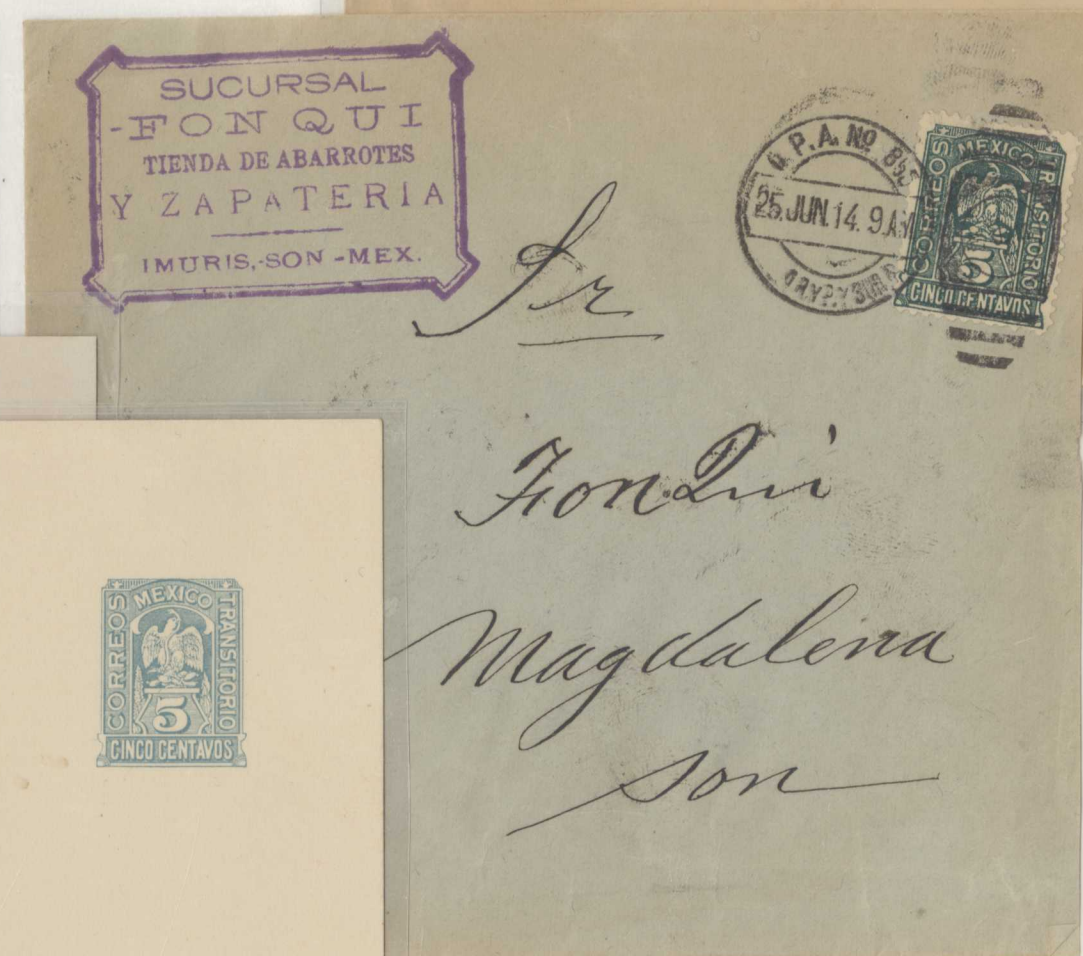 SUCURSAL
-FON QUI
TIENDA DE ABARROTES
Y ZAPATERIA
IMURIS,-SON-MEX.
O.P.A. Nº 85
25.JUN.14. 9.AM
MEXICO
CORREOS
TRANSITORIO
5
CINCO CENTAVOS
Sr
Fon Qui
Magdalena
Son
MEXICO
CORREOS
TRANSITORIO
5
CINCO CENTAVOS